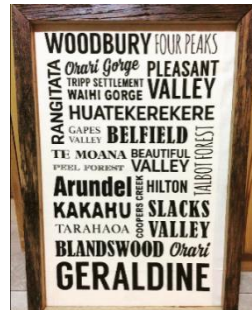 WOODBURY FOUR PEAKS
RANGITATA
Orari Gorge
TRIPP SETTLEMENT
WAIHI GORGE
PLEASANT
VALLEY
HUATEKEREKERE
GAPES
VALLEY
BELFIELD
TE MOANA
PEEL FOREST
BEAUTIFUL
VALLEY
TALBOT FOREST
Arundel
COOPERS CREEK
HILTON
KAKAHU
TARAHAOA
SLACKS
VALLEY
BLANDSWOOD Orari
GERALDINE